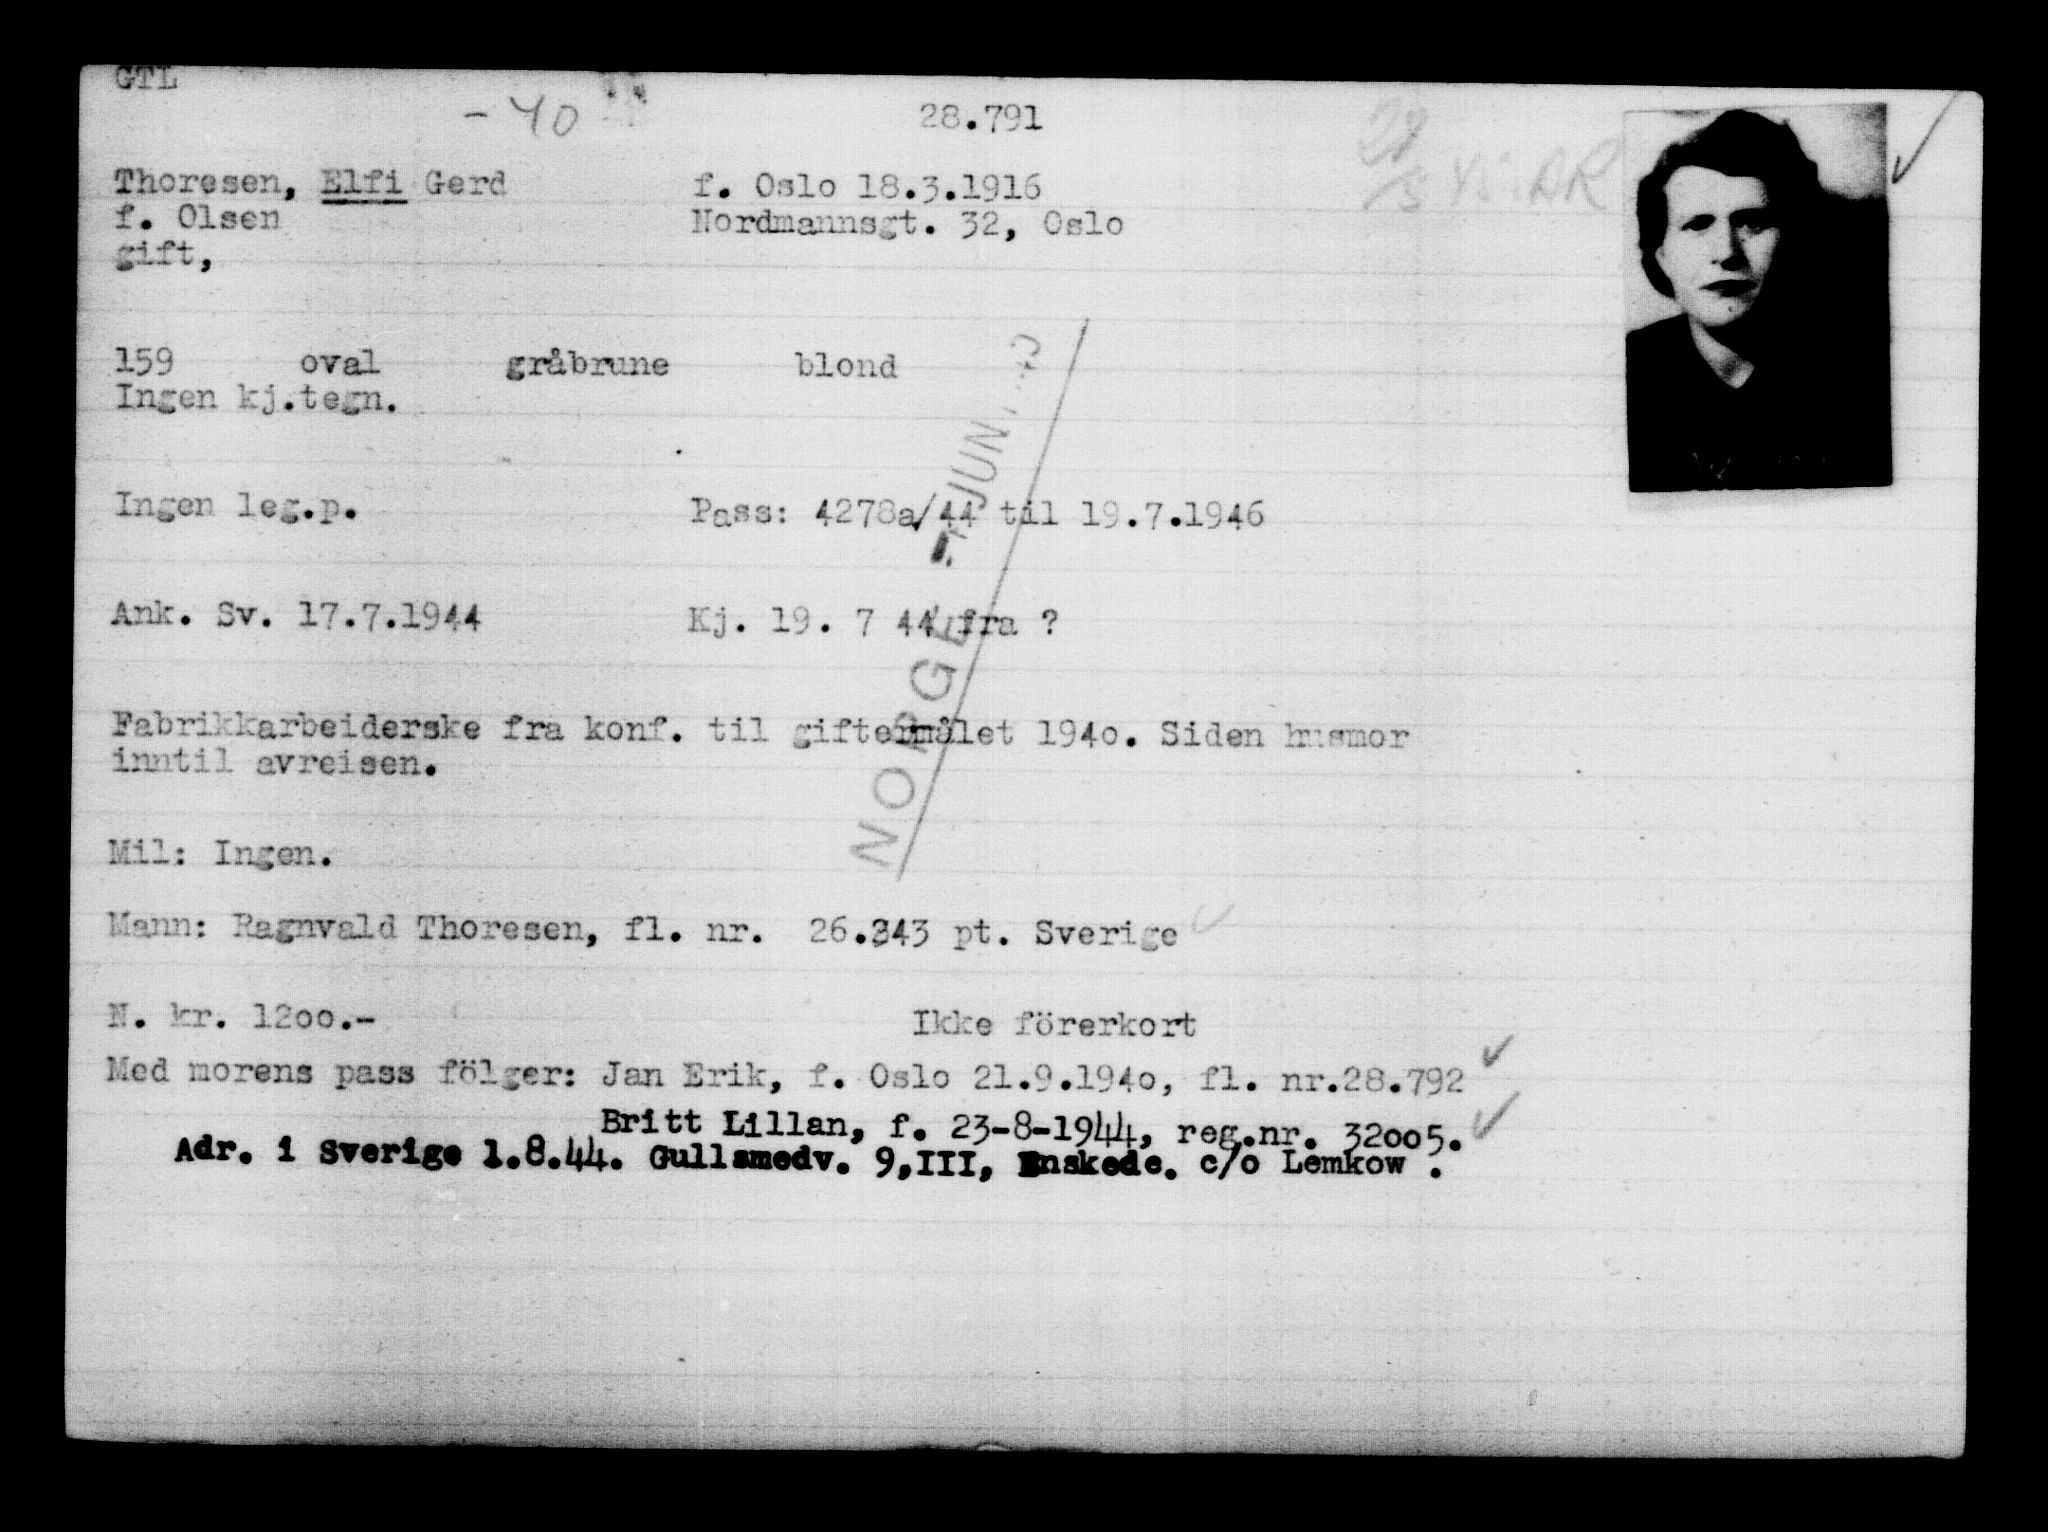 GTL
- 40 28.791
Thoresen, Elfi Gerd f. Oslo 18.3.1916
f. Olsen Nordmannsgt. 32, Oslo
gift,
159 oval gråbrune blond
Ingen kj.tegn.
Ingen leg.p. Pass: 4278a/44 til 19.7.1946
Ank. Sv. 17.7.1944 Kj. 19. 7 44 fra ?
Fabrikkarbeiderske fra konf. til giftermålet 194o. Siden husmor
inntil avreisen.
NORGE JUNI
Mil: Ingen.
Mann: Ragnvald Thoresen, fl. nr. 26.343 pt. Sverige
N. kr. 12oo.- Ikke förerkort
Med morens pass fölger: Jan Erik, f. Oslo 21.9.194o, fl. nr.28.792
Britt Lillan, f. 23-8-1944, reg.nr. 32oo5.
Adr. i Sverige 1.8.44. Gullsmedv. 9,III, Enskede. c/o Lemkow .